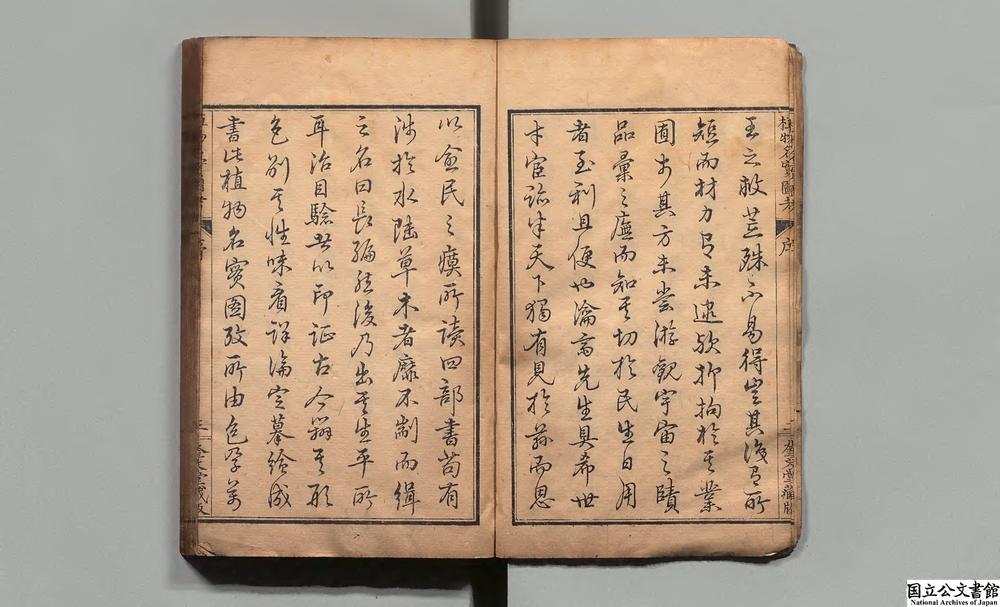 植物名實圖考 序 二 奎文堂藏版
王之救荒殊不易得豈其識有所
短而材力有未逮歟抑拘於其業
囿於其方未嘗游觀宇宙之賾
品彙之廡而知其切於民生日用
者至利且便也瀹齋先生具希世
才宦跡半天下獨有見於茲而思
以愈民之瘼所讀四部書苟有
涉於水陸草木者靡不剬而緝
之名曰長編然後乃出其生平所
耳治目驗者以印証古今辨其形
色別其性味看詳論定摹繪成
書此植物名實圖考所由包孕萬
三 奎文堂藏版
国立公文書館
National Archives of Japan